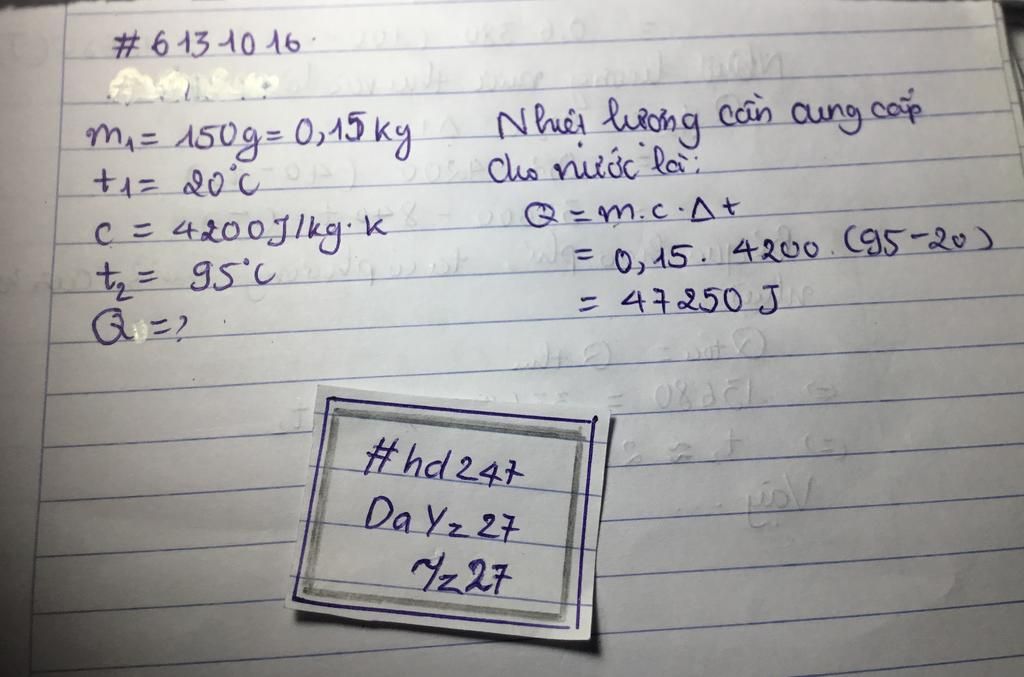 #6131016.
m₁ = 150g = 0,15 kg
t1 = 20°C
c = 4200J/kg.k
t₂ = 95°C
Q = ?
Nhiệt lượng cần cung cấp
cho nước là:
Q = m.c.Δt
= 0,15. 4200.(95-20)
= 47250 J
#hd247
DaYz27
Yz27